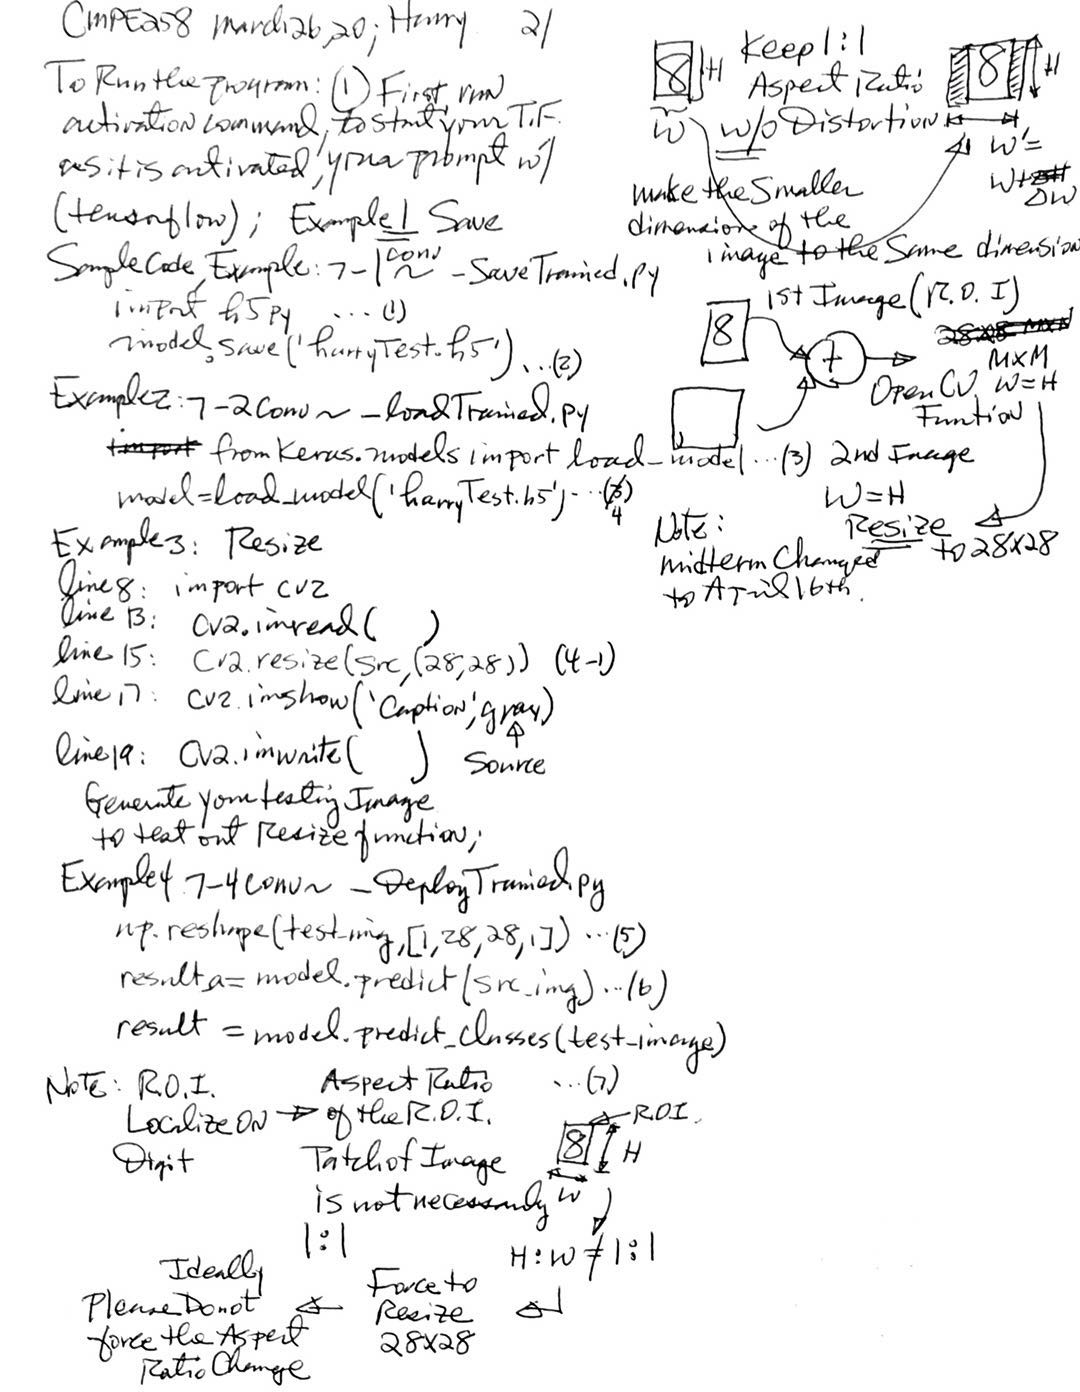 CMPE258 March 26, 20; Harry 2/
To Run the program: (1) First, run
activation command, to start your T.F.
as it is activated, you a prompt w/
(tensorflow); Example 1 Save
Sample Code, Example: 7-1 conv ~ -SaveTrained.py
import h5py ... (1)
model.save('harryTest.h5') ...(2)
Example 2: 7-2Conv~ -loadTrained.py
import from Keras.models import load_model ...(3)
model=load_model('harryTest.h5') ...(4)
Example 3: Resize
line 8: import cv2
line 13: cv2.imread( )
line 15: cv2.resize(src,(28,28)) (4-1)
line 17: cv2.imshow('Caption',gray)
Source
line 19: cv2.imwrite( )
Generate your testing Image
to test out Resize function;
Example 4 7-4Conv~ -DeployTrained.py
np.reshape(test-img,[1,28,28,1]) ...(5)
result_a= model.predict(src_img) ...(6)
result = model.predict_classes(test-image)
...(7)
Note: R.O.I.
Localize on
Digit
Aspect Ratio
of the R.O.I.
Patch of Image
is not necessarily
1:1
8
R.O.I.
H
W
H:W ≠ 1:1
Force to
Resize
28X28
Ideally
Please Do not
force the Aspect
Ratio Change
8
H
W
Keep 1:1
Aspect Ratio
w/o Distortion
8
H
W'=
W+
ΔW
make the Smaller
dimensions of the
image to the Same dimension
1st Image (R.O.I)
8
+
28X28 MXN
MXM
W=H
OpenCV
Funtion
2nd Image
W=H
Resize
to 28X28
Note:
midterm Changed
to April 16th.